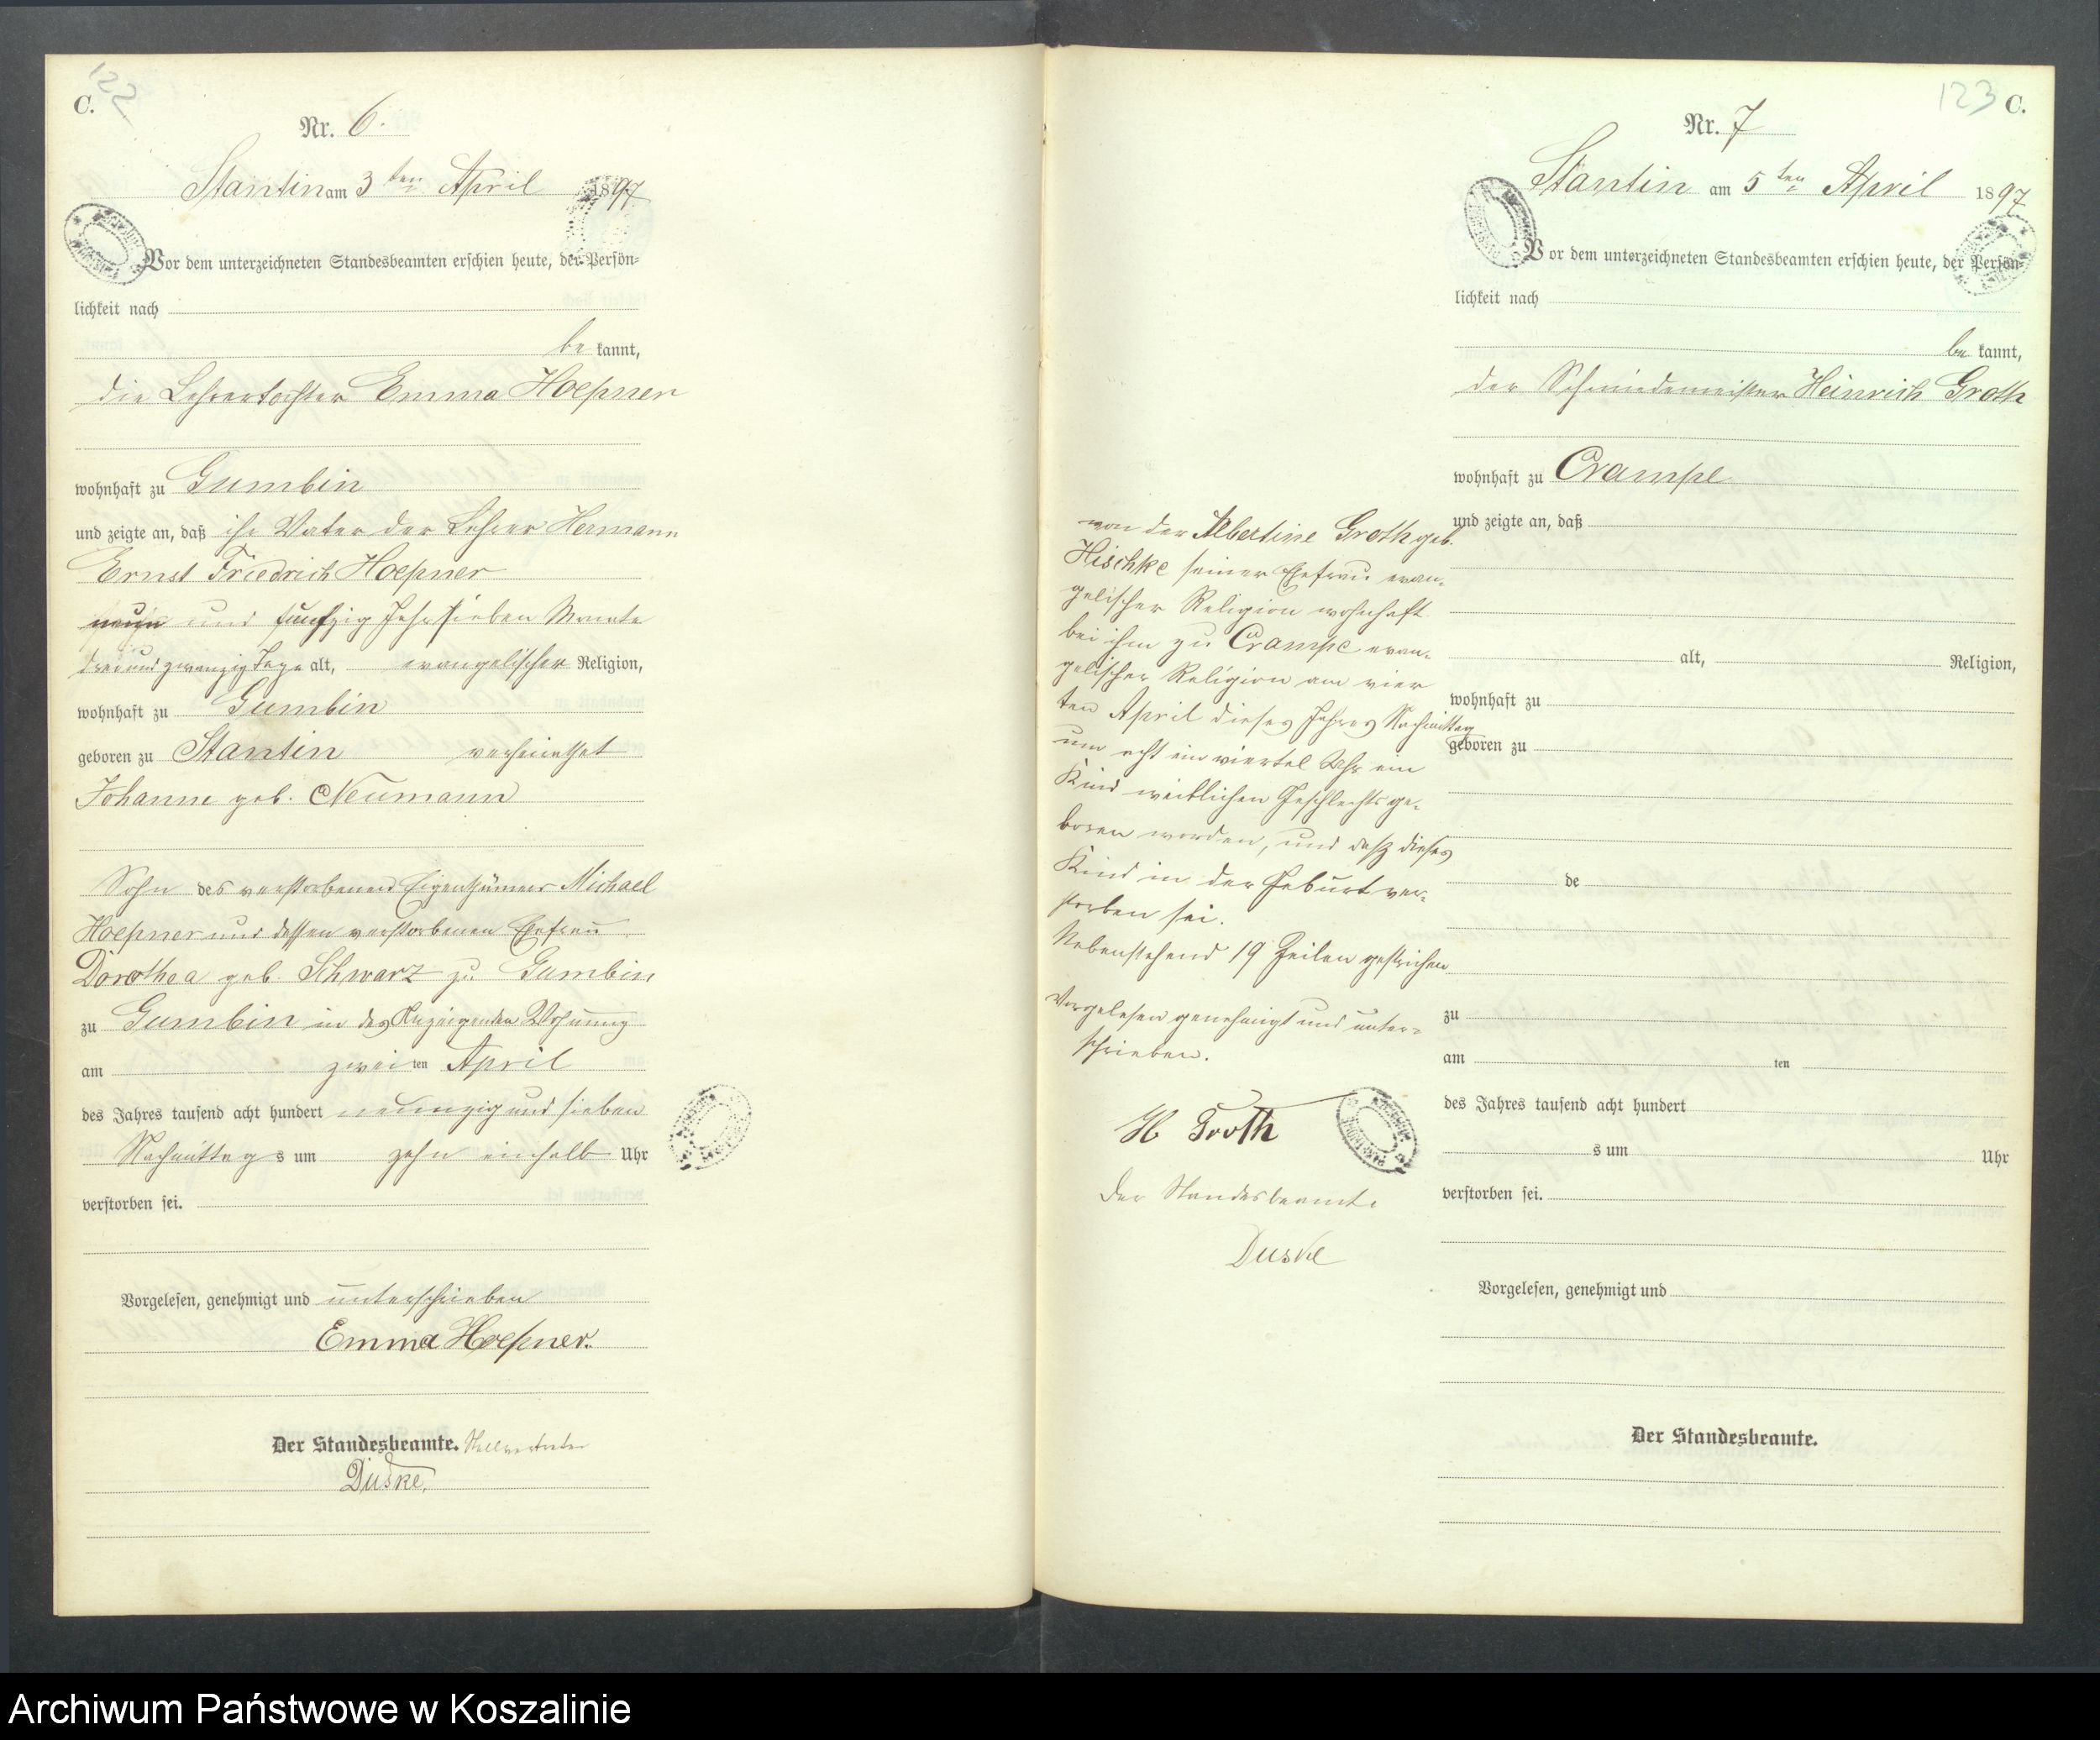 122
C.
Nr. 6.
Stantin am 3ten April 1897
Vor dem unterzeichneten Standesbeamten erschien heute, der Persön-
lichkeit nach
be kannt,
die Lehrertochter Emma Hoepner
wohnhaft zu Gumbin
und zeigte an, daß ihr Vater der Lehrer Hermann
Ernst Friedrich Hoepner
neun und funfzig Jahr sieben Monate
drei und zwanzig Tage alt, evangelischer Religion,
wohnhaft zu Gumbin
geboren zu Stantin verheirathet
Johanne geb. Neumann
Sohn des verstorbenen Eigenthümers Michael
Hoepner und dessen verstorbenen Ehefrau
Dorothea geb. Schwarz zu Gumbin
zu Gumbin in des Anzeigenden Wohnung
am zweiten April
des Jahres tausend acht hundert neunzig und sieben
Nachmittags um zehn einhalb Uhr
verstorben sei.
Vorgelesen, genehmigt und unterschrieben
Emma Hoepner.
Der Standesbeamte. Stellvertreter
Duske.
123
C.
Nr. 7
Stantin am 5ten April 1897
Vor dem unterzeichneten Standesbeamten erschien heute, der Persön-
lichkeit nach
be kannt,
der Schmiedemeister Heinrich Groth
wohnhaft zu Crampe
und zeigte an, daß
von der Albertine Groth geb.
Hischke seiner Ehefrau evan-
gelischer Religion wohnhaft
bei ihm zu Crampe evan-
gelischer Religion am vier
ten April dieses Jahres Nachmittag
um acht ein viertel Uhr ein
Kind weiblichen Geschlechts ge-
boren worden, und daß dieses
Kind in der Geburt ver-
storben sei.
Nebenstehend 19 Zeilen gestrichen
Vorgelesen genehmigt und unter-
schrieben.
H Groth
Der Standesbeamte
Duske
alt, Religion,
wohnhaft zu
geboren zu
de
zu
am ten
des Jahres tausend acht hundert
s um Uhr
verstorben sei.
Vorgelesen, genehmigt und
Der Standesbeamte.
Archiwum Państwowe w Koszalinie